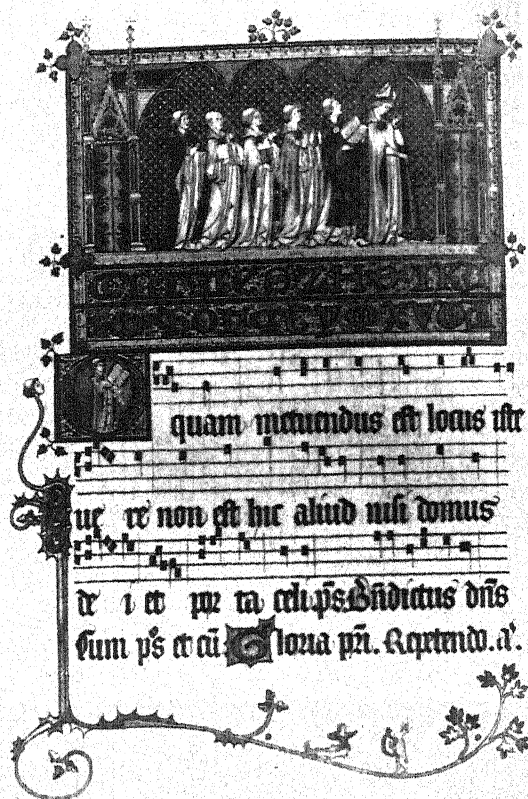 quam metuendus est locus iste
ue re non est hic aliud nisi domus
de i et por ta celi. p̄s. Bñdictus dñs
sum p̄s et cū Gloria pri. Repetendo. a͛.